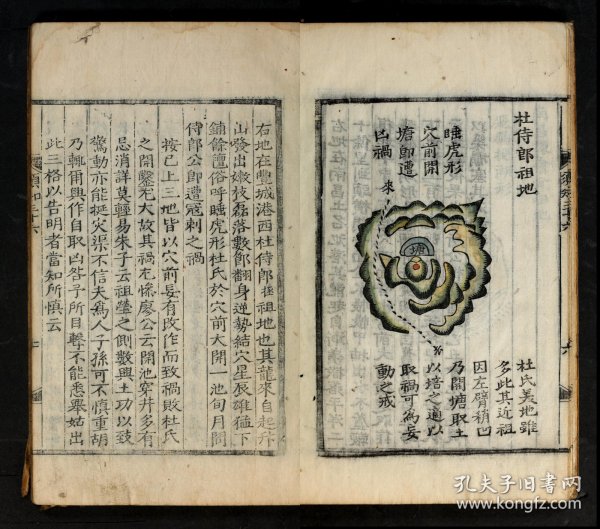 杜侍郎祖地
睡虎形
穴前開
塘即遭
凶禍
來
塘
杜氏美地雖
多此其近祖
因左臂稍凹
乃開塘取土
以培之適以
取禍可為妄
動之戒
右地在豐城港西杜侍郎祖地也其龍來自起升
山發出嫩枝磊落數節翻身逆勢結穴星辰雄猛下
鋪餘氊俗呼睡虎形杜氏於穴前大開一池旬月間
侍郎公即遭寇刺之禍
按已上三地皆以穴前妄有改作而致禍敗杜氏
之開鑿尤大故其禍尤慘廖公云開池穿井多有
忌消詳莫輕易朱子云祖塋之側數興土功以致
驚動亦能挺災渠不信夫為人子孫可不慎重胡
乃輙爾興作自取凶咎予所目擊不能悉舉姑出
此三格以告明者當知所慎云
孔夫子旧书网
www.kongfz.com